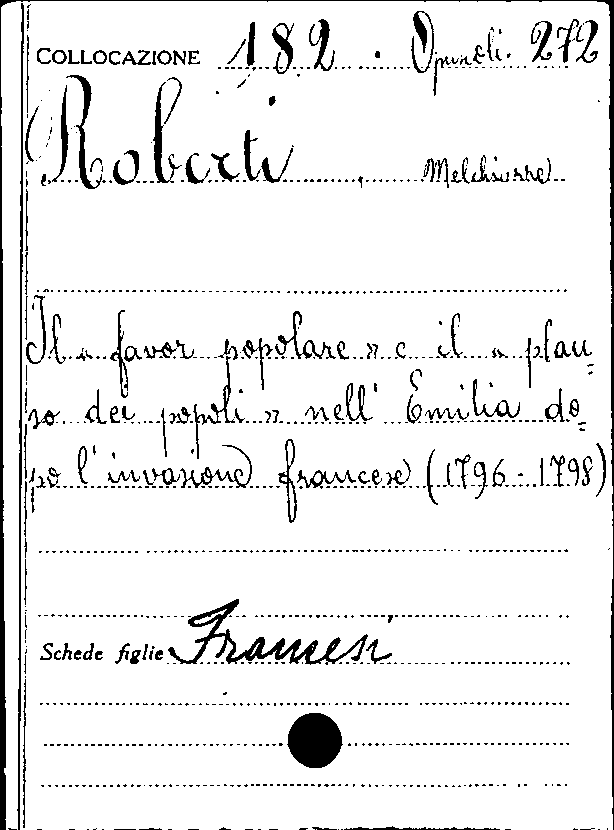 COLLOCAZIONE 182. Opuscoli. 272
Roberti, Melchiorre
Il « favor popolare » e il « plau=
so dei popoli » nell' Emilia do=
po l'invasione francese (1796-1798)
Schede figlie Francesi